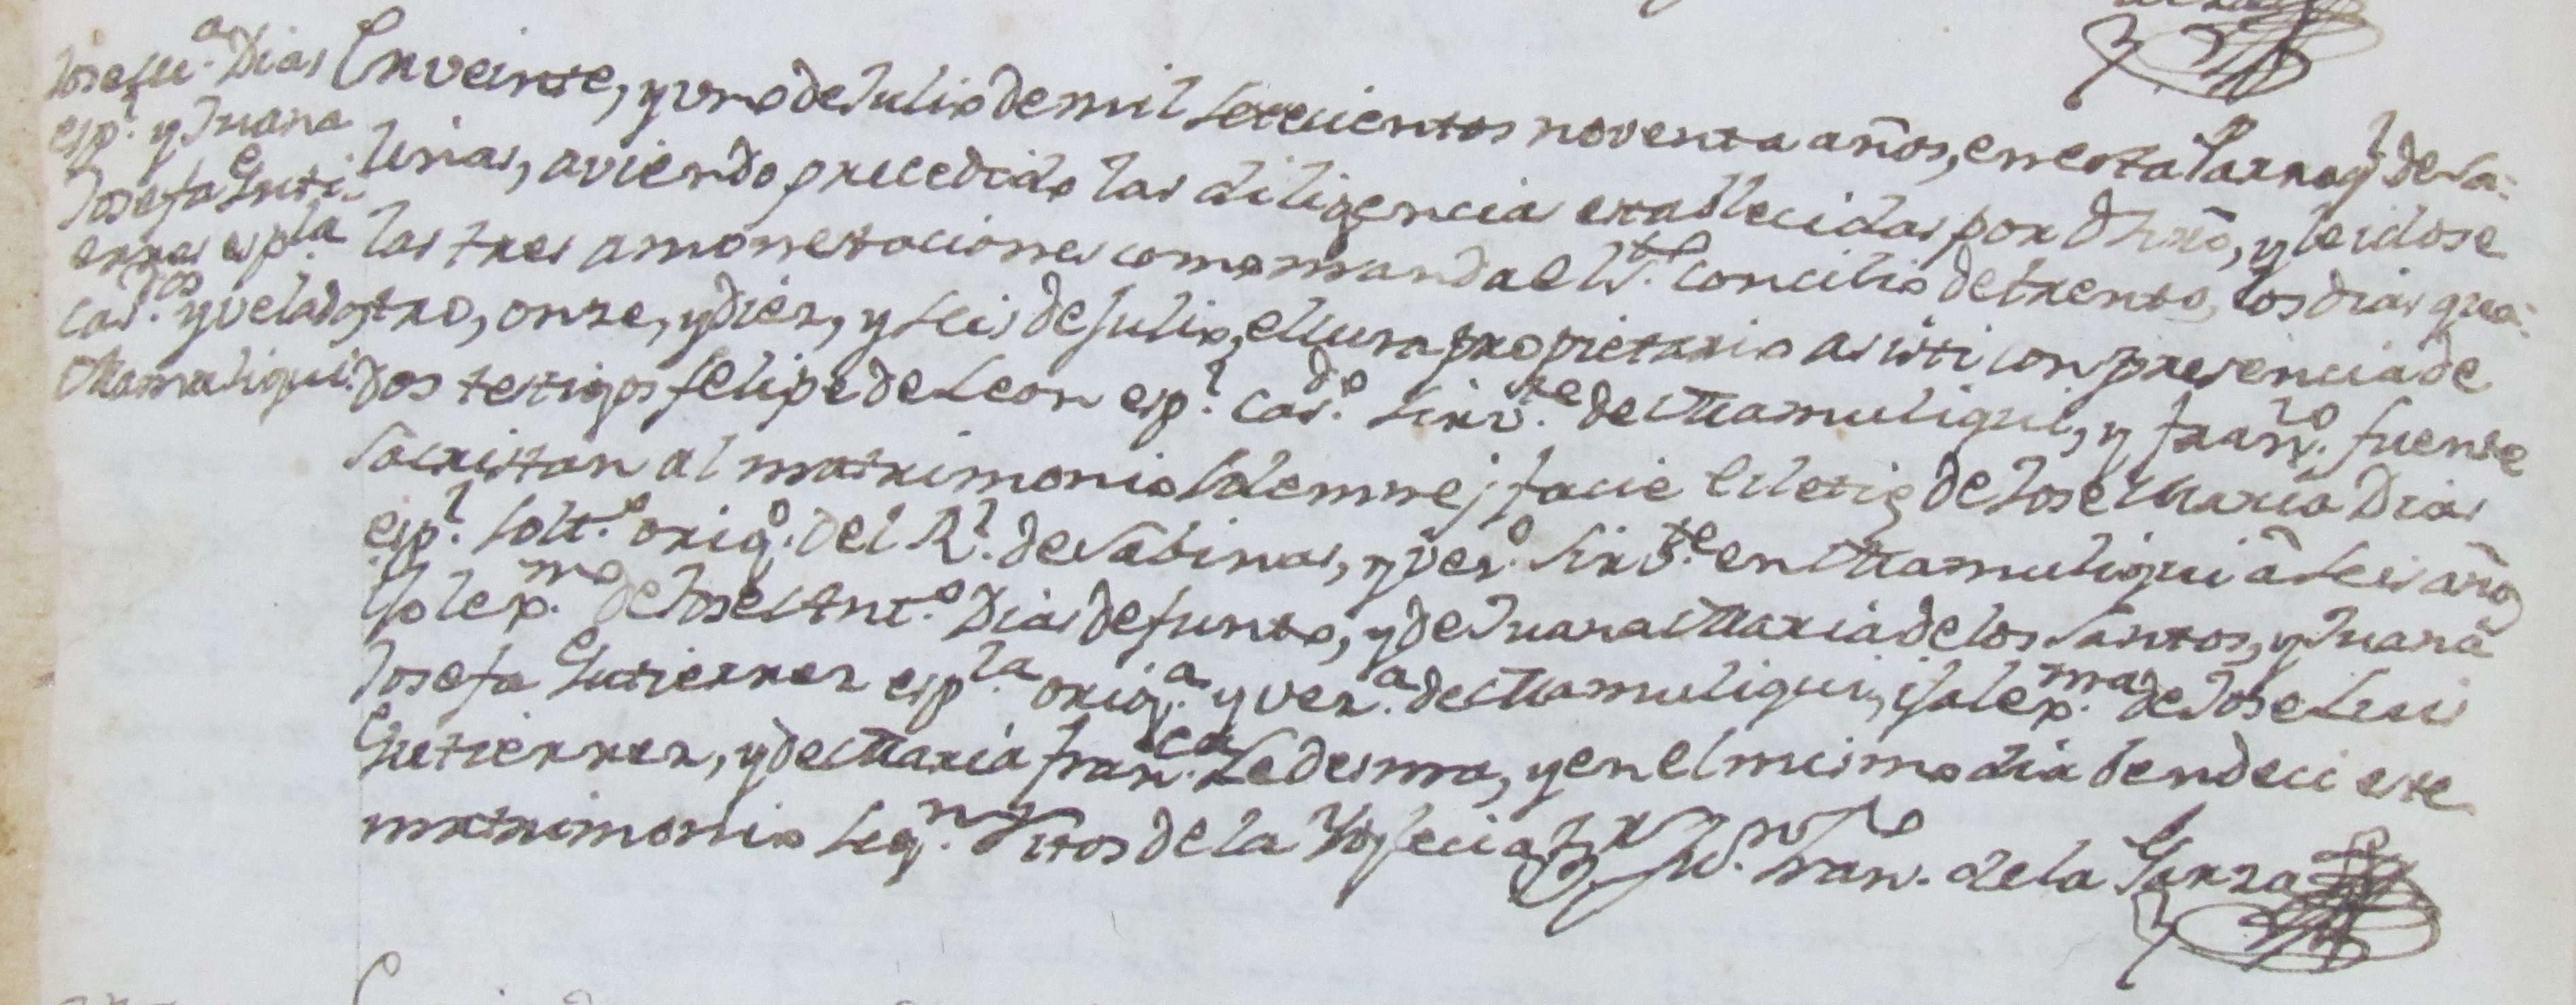 Josef M.ª Dias
esp.l y Juana
Josefa Guti-
erras esp.la
cas.dos y velados
Mamuliqui.
En veinte, y uno de Julio de mil setecientos noventa años, en esta Parroq.l de Sa-
linas, aviendo precedido las diligencias establecidas por dhrõ, y leidose
las tres amonestaciones como manda el S.to Concilio de trento, los dias qua-
tro, onze, y diez, y seis de Julio, el cura propietario asisti con presencia de
dos testigos felipe de Leon esp.l cas.do sirv.te de Mamuliqui, y fran.co fuente
sacristan al matrimonio solemne, facie Eclesie de Jose Maria Dias
esp.l solt.o orig.o del R.l de Sabinas, y vez.o sirv.te en Mamuliqui â seis año
yjo lex.mo de Jose Ant.o Dias defunto, y de Juana Maria de los Santos, y Juana
Josefa Gutierrez esp.la orig.a y vez.a de Mamuliqui, yja lex.ma de Jose Luis
Gutierrez, y de Maria fran.ca Ledesma, y en el mismo dia bendeci este
matrimonio seg.n ritos de la Yglecia
Fran.co de la Garza